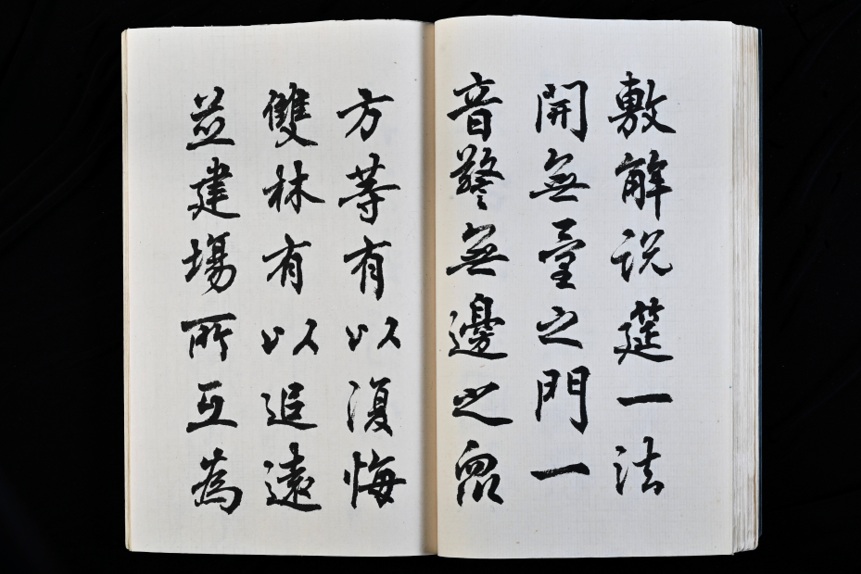 敷解説筵一法
開無量之門一
音警無邊之衆
方等有以復悔
雙林有以追遠
並建場所互為